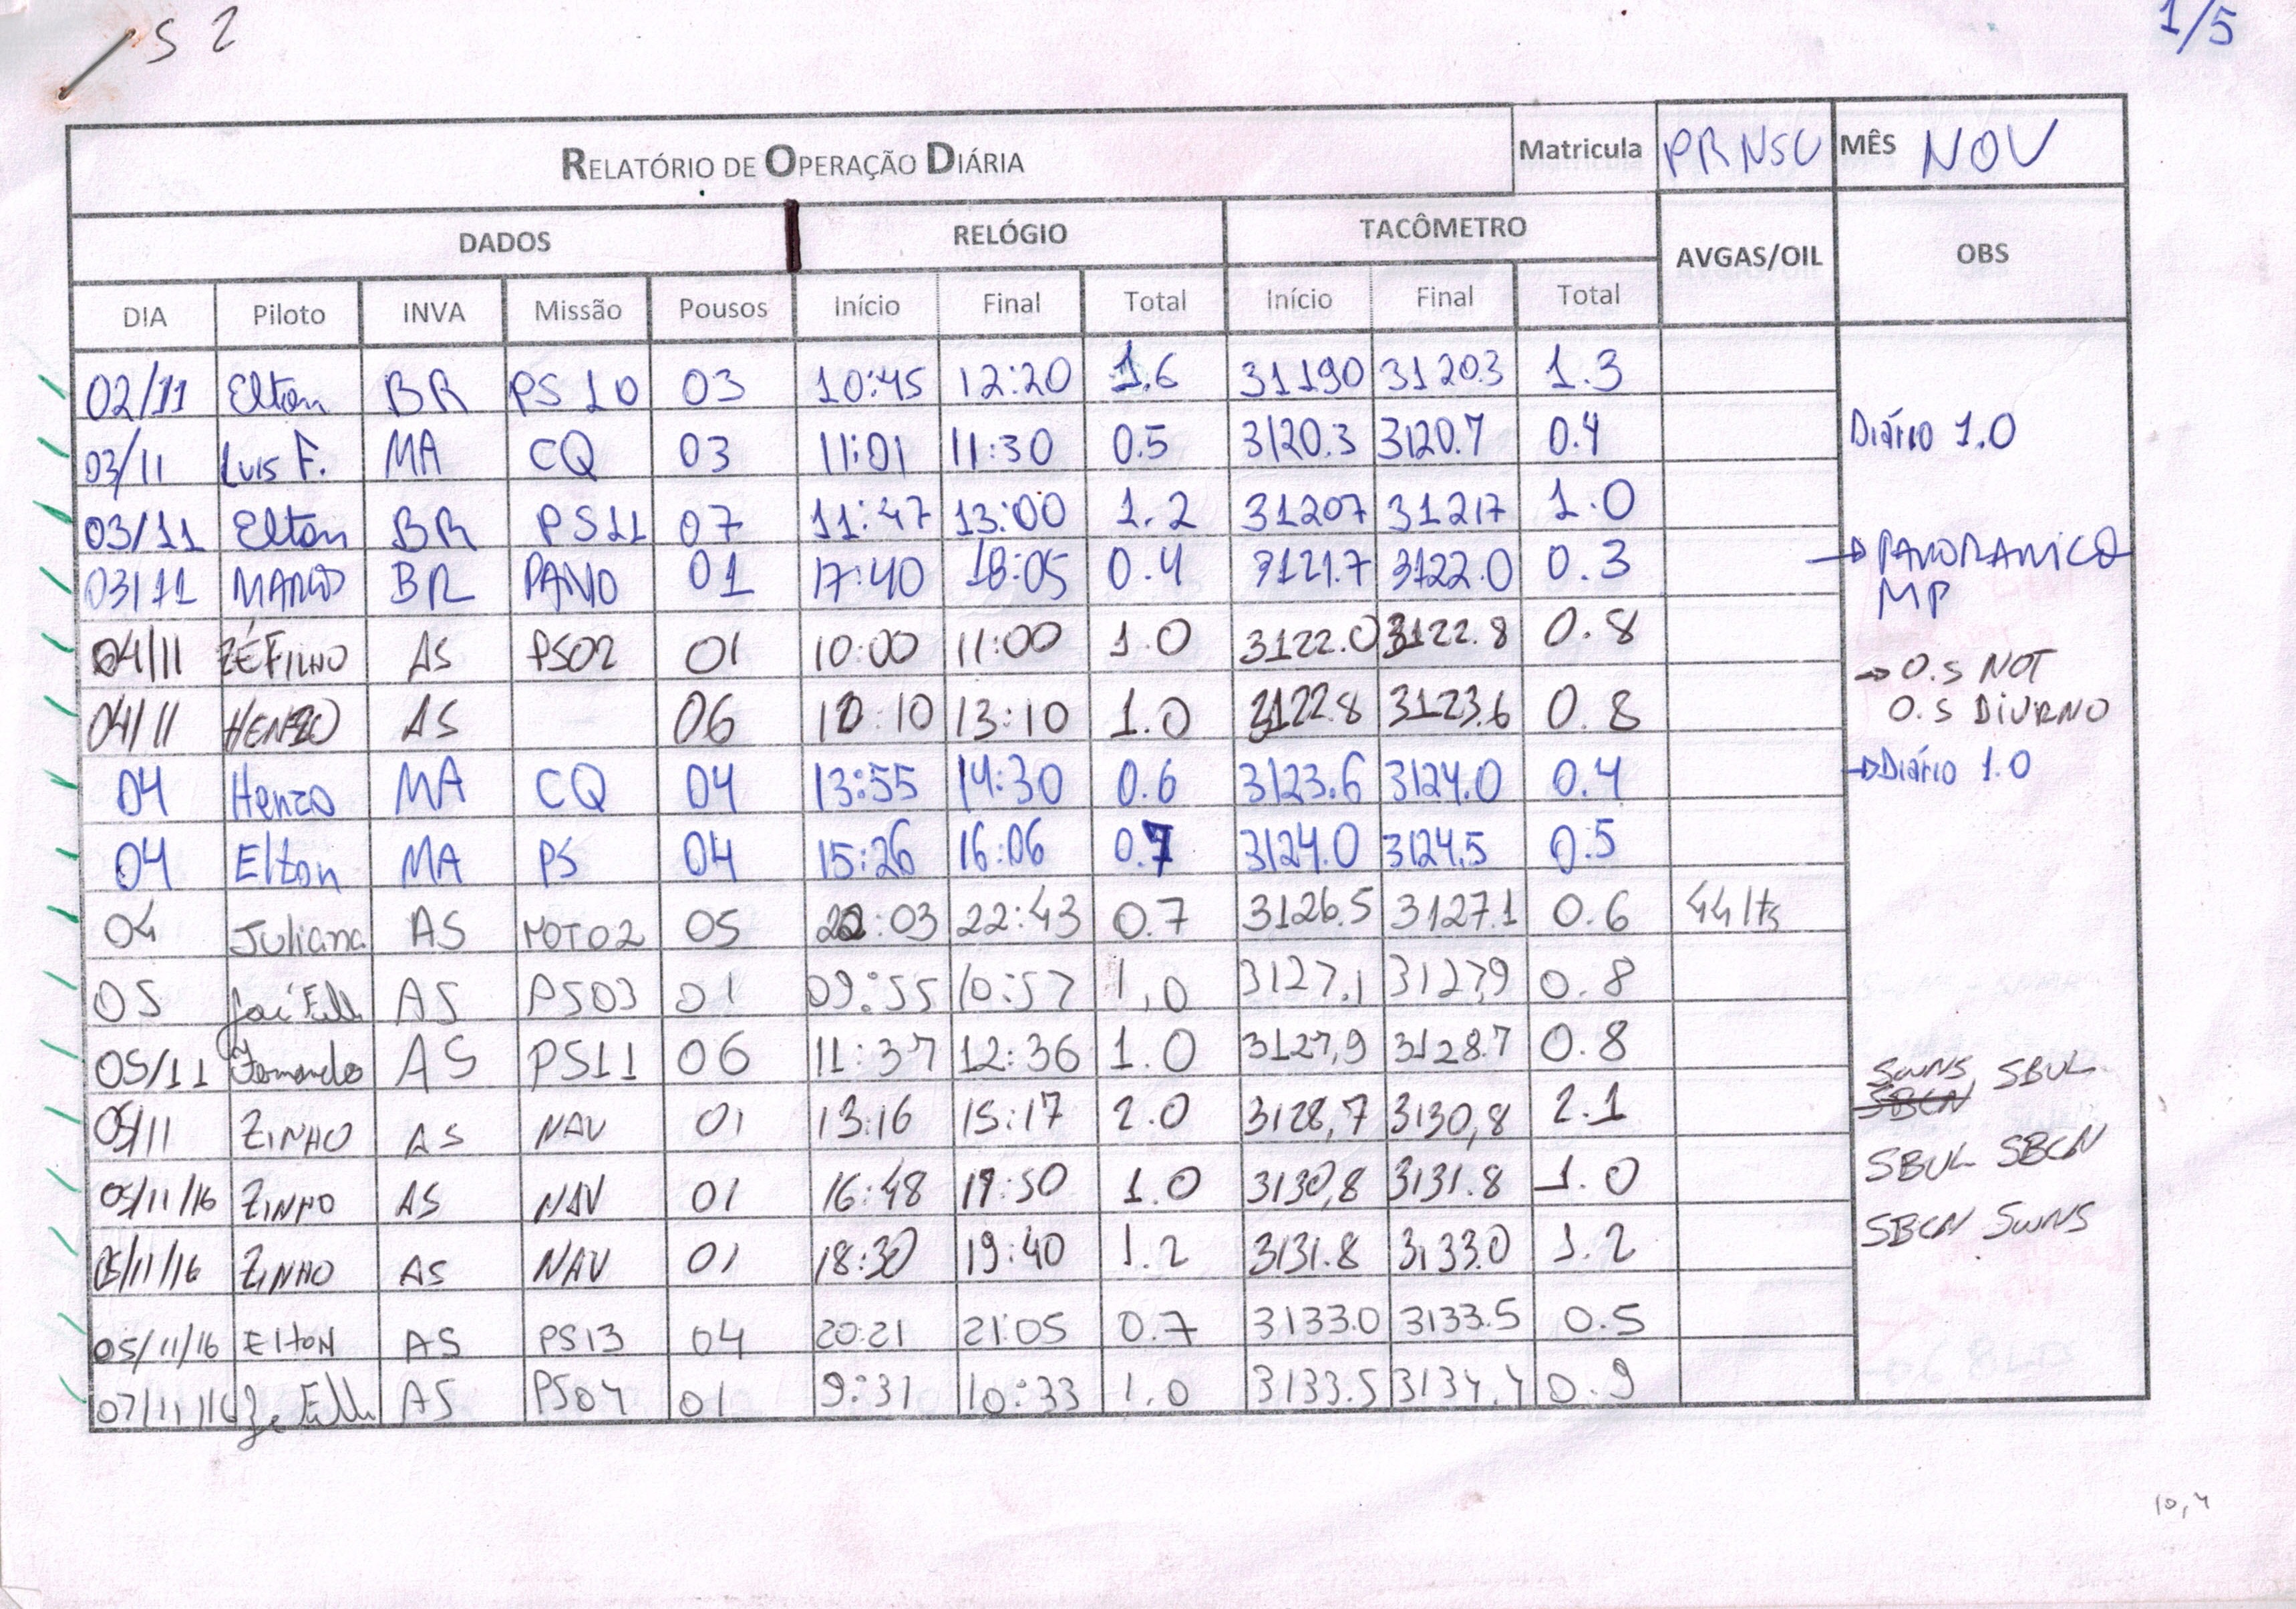 S 2
1/5
RELATÓRIO DE OPERAÇÃO DIÁRIA Matricula PRNSU MÊS NOV
DADOS RELÓGIO TACÔMETRO AVGAS/OIL OBS
DIA Piloto INVA Missão Pousos Início Final Total Início Final Total
02/11 Elton BR PS 10 03 10:45 12:20 1.6 31190 31203 1.3
03/11 Luis F. MA CQ 03 11:01 11:30 0.5 3120.3 3120.7 0.4 Diário 1.0
03/11 Elton BR PS11 07 11:47 13:00 1.2 31207 31217 1.0
03/11 BR PANO 01 17:40 18:05 0.4 3121.7 3122.0 0.3 → PANORAMICO
MP
04/11 ZÉ FILHO AS PS02 01 10:00 11:00 1.0 3122.0 3122.8 0.8 → 0.5 NOT
04/11 HENZO AS 06 13:10 1.0 3122.8 3123.6 0.8 0.5 DIURNO
04 Henzo MA CQ 04 13:55 14:30 0.6 3123.6 3124.0 0.4 → Diário 1.0
04 Elton MA PS 04 15:26 16:06 0.7 3124.0 3124.5 0.5
04 Juliana AS NOT02 05 22:03 22:43 0.7 3126.5 3127.1 0.6 44 lts
05 AS PS03 01 09:55 10:57 1,0 3127,1 3127,9 0.8
05/11 Fernando AS PS11 06 11:37 12:36 1.0 3127,9 3128.7 0.8
05/11 ZINHO AS NAV 01 13:16 15:17 2.0 3128,7 3130,8 2.1 SWNS SBUL
SBCN
05/11/16 ZINHO AS NAV 01 16:48 17:50 1.0 3130,8 3131.8 1.0 SBUL SBCN
05/11/16 ZINHO AS NAV 01 18:30 19:40 1.2 3131.8 3133.0 1.2 SBCN SWNS
05/11/16 ELTON AS PS13 04 20:21 21:05 0.7 3133.0 3133.5 0.5
07/11/16 AS PS04 01 9:31 10:33 1.0 3133.5 3134,4 0.9
10,4